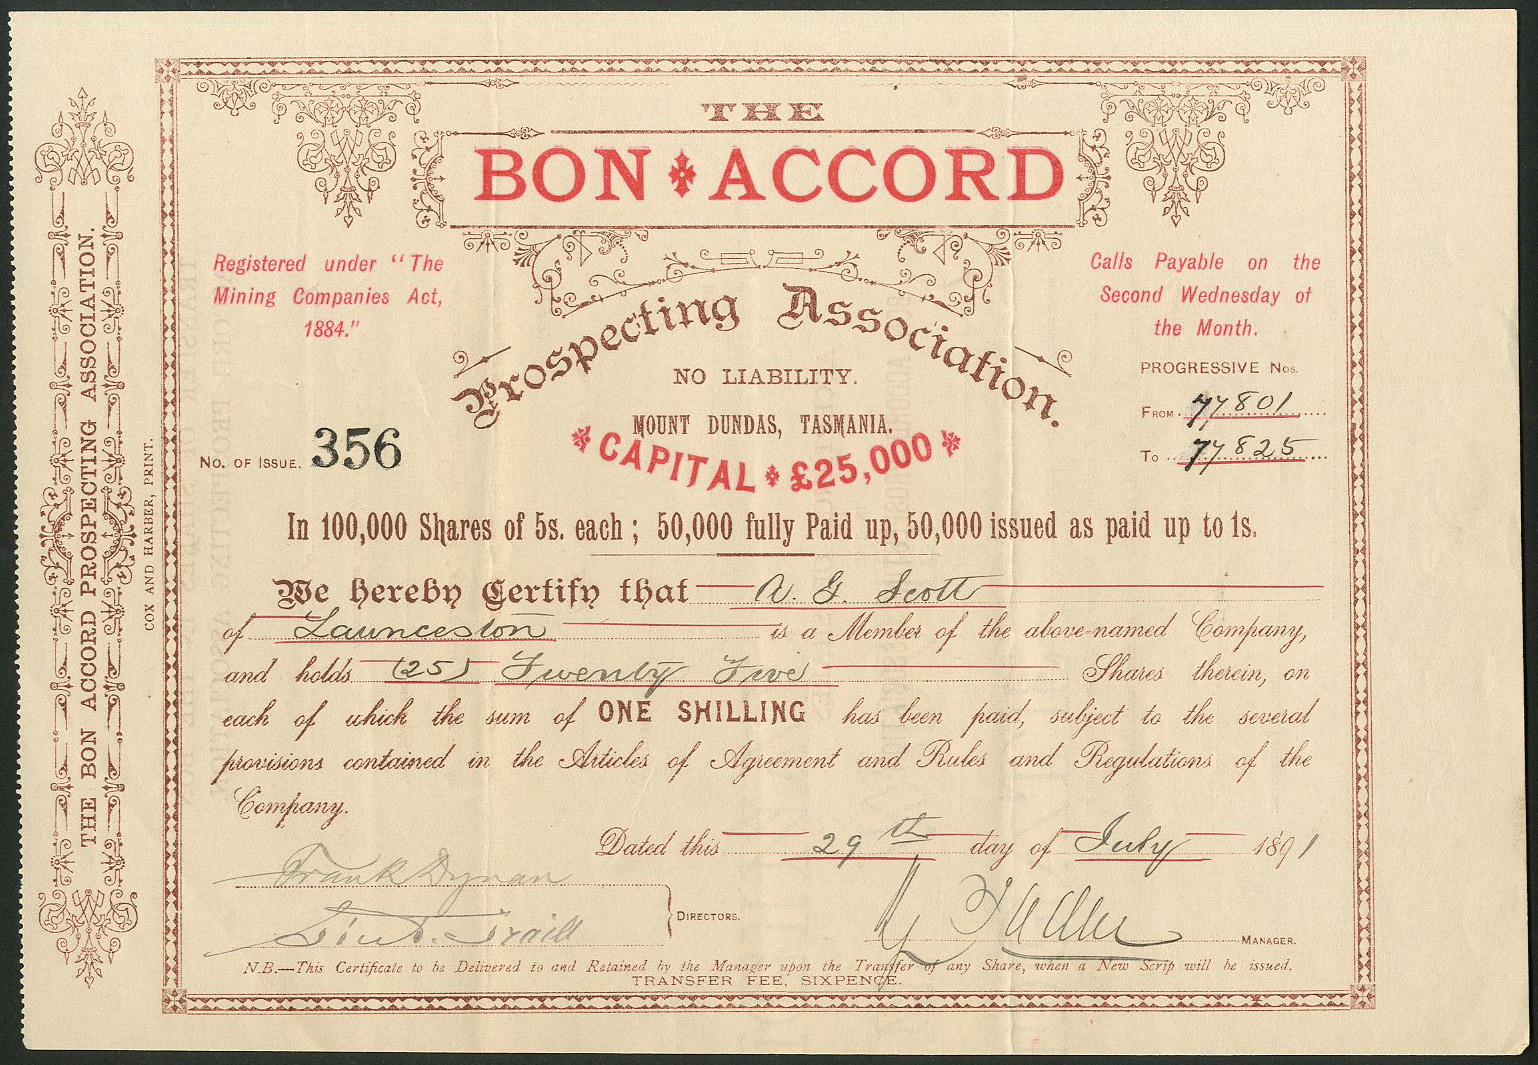 THE
BON ACCORD
Prospecting Association.
NO LIABILITY.
MOUNT DUNDAS, TASMANIA.
CAPITAL £25,000
Registered under "The
Mining Companies Act,
1884."
Calls Payable on the
Second Wednesday of
the Month.
PROGRESSIVE Nos.
FROM 77801
TO 77825
NO. OF ISSUE. 356
In 100,000 Shares of 5s. each; 50,000 fully Paid up, 50,000 issued as paid up to 1s.
We hereby Certify that A. G. Scott
of Launceston is a Member of the above-named Company,
and holds (25) Twenty Five Shares therein, on
each of which the sum of ONE SHILLING has been paid, subject to the several
provisions contained in the Articles of Agreement and Rules and Regulations of the
Company.
Dated this 29th day of July 1891
Frank Dynan
Traill
DIRECTORS.
MANAGER.
N.B.—This Certificate to be Delivered to and Retained by the Manager upon the Transfer of any Share, when a New Scrip will be issued.
TRANSFER FEE, SIXPENCE.
THE BON ACCORD PROSPECTING ASSOCIATION.
COX AND HARBER, PRINT.